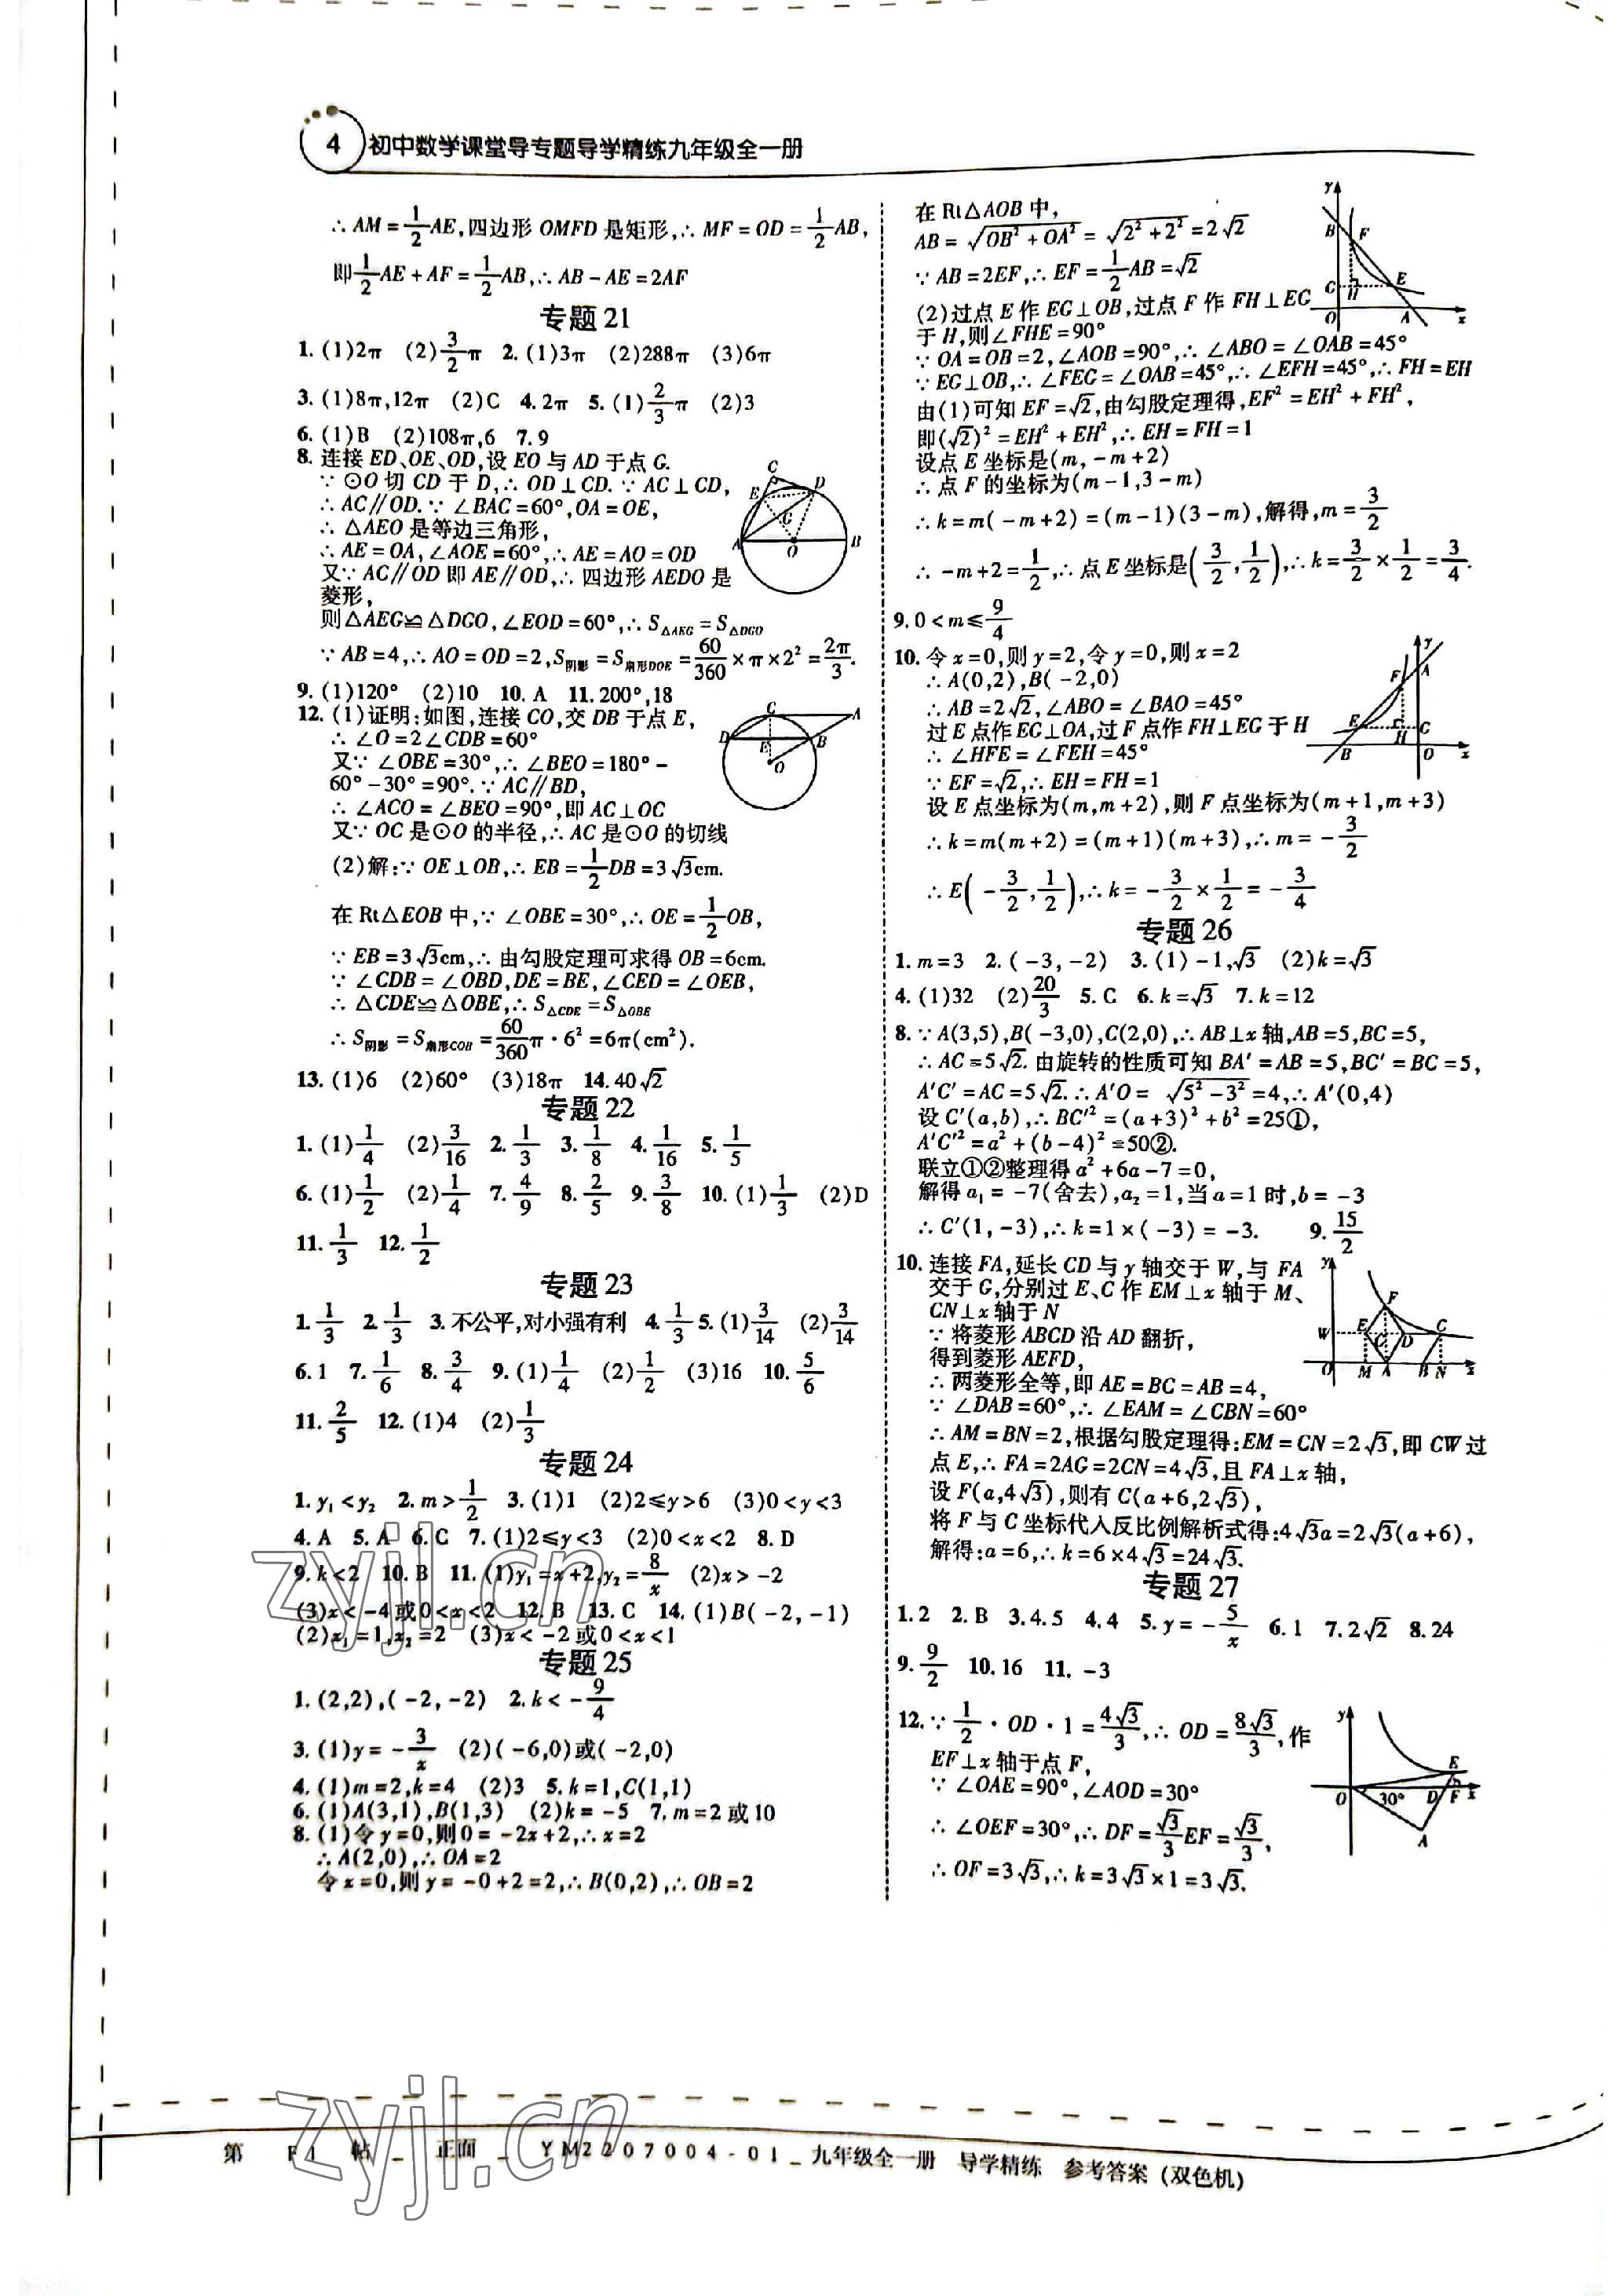 4 初中数学课堂导专题导学精练九年级全一册
∴ AM=1/2AE,四边形 OMFD 是矩形,∴ MF=OD=1/2AB,
即1/2AE+AF=1/2AB,∴ AB-AE=2AF
专题 21
1. (1)2π (2)3/2π 2. (1)3π (2)288π (3)6π
3. (1)8π,12π (2)C 4. 2π 5. (1)2/3π (2)3
6. (1)B (2)108π,6 7. 9
8. 连接 ED、OE、OD,设 EO 与 AD 于点 G.
∵ ⊙O 切 CD 于 D,∴ OD⊥CD. ∵ AC⊥CD,
∴ AC∥OD. ∵ ∠BAC=60°,OA=OE,
∴ △AEO 是等边三角形,
∴ AE=OA,∠AOE=60°,∴ AE=AO=OD
又∵ AC∥OD 即 AE∥OD,∴ 四边形 AEDO 是
菱形,
则△AEG≌△DGO,∠EOD=60°,∴ S△AEG=S△DGO
∵ AB=4,∴ AO=OD=2,S阴影=S扇形DOE=60/360×π×2²=2π/3.
9. (1)120° (2)10 10. A 11. 200°,18
12. (1)证明:如图,连接 CO,交 DB 于点 E,
∴ ∠O=2∠CDB=60°
又∵ ∠OBE=30°,∴ ∠BEO=180°-
60°-30°=90°. ∵ AC∥BD,
∴ ∠ACO=∠BEO=90°,即 AC⊥OC
又∵ OC 是⊙O 的半径,∴ AC 是⊙O 的切线
(2)解:∵ OE⊥OB,∴ EB=1/2DB=3√3cm.
在 Rt△EOB 中,∵ ∠OBE=30°,∴ OE=1/2OB,
∵ EB=3√3cm,∴ 由勾股定理可求得 OB=6cm.
∵ ∠CDB=∠OBD,DE=BE,∠CED=∠OEB,
∴ △CDE≌△OBE,∴ S△CDE=S△OBE
∴ S阴影=S扇形COB=60/360π·6²=6π(cm²).
13. (1)6 (2)60° (3)18π 14. 40√2
专题 22
1. (1)1/4 (2)3/16 2. 1/3 3. 1/8 4. 1/16 5. 1/5
6. (1)1/2 (2)1/4 7. 4/9 8. 2/5 9. 3/8 10. (1)1/3 (2)D
11. 1/3 12. 1/2
专题 23
1. 1/3 2. 1/3 3. 不公平,对小强有利 4. 1/3 5. (1)3/14 (2)3/14
6. 1 7. 1/6 8. 3/4 9. (1)1/4 (2)1/2 (3)16 10. 5/6
11. 2/5 12. (1)4 (2)1/3
专题 24
1. y₁<y₂ 2. m>1/2 3. (1)1 (2)2≤y>6 (3)0<y<3
4. A 5. A 6. C 7. (1)2≤y<3 (2)0<x<2 8. D
9. k<2 10. B 11. (1)y₁=x+2,y₂=8/x (2)x>-2
(3)x<-4或0<x<2 12. B 13. C 14. (1)B(-2,-1)
(2)x₁=1,x₂=2 (3)x<-2或0<x<1
专题 25
1. (2,2),(-2,-2) 2. k<-9/4
3. (1)y=-3/x (2)(-6,0)或(-2,0)
4. (1)m=2,k=4 (2)3 5. k=1,C(1,1)
6. (1)A(3,1),B(1,3) (2)k=-5 7. m=2或10
8. (1)令 y=0,则0=-2x+2,∴ x=2
∴ A(2,0),∴ OA=2
令 x=0,则 y=-0+2=2,∴ B(0,2),∴ OB=2
在 Rt△AOB 中,
AB=√OB²+OA²=√2²+2²=2√2
∵ AB=2EF,∴ EF=1/2AB=√2
(2)过点 E 作 EG⊥OB,过点 F 作 FH⊥EG
于 H,则∠FHE=90°
∵ OA=OB=2,∠AOB=90°,∴ ∠ABO=∠OAB=45°
∵ EG⊥OB,∴ ∠FEG=∠OAB=45°,∴ ∠EFH=45°,∴ FH=EH
由(1)可知 EF=√2,由勾股定理得,EF²=EH²+FH²,
即(√2)²=EH²+EH²,∴ EH=FH=1
设点 E 坐标是(m,-m+2)
∴ 点 F 的坐标为(m-1,3-m)
∴ k=m(-m+2)=(m-1)(3-m),解得,m=3/2
∴ -m+2=1/2,∴ 点 E 坐标是(3/2,1/2),∴ k=3/2×1/2=3/4.
9. 0<m≤9/4
10. 令 x=0,则 y=2,令 y=0,则 x=2
∴ A(0,2),B(-2,0)
∴ AB=2√2,∠ABO=∠BAO=45°
过 E 点作 EG⊥OA,过 F 点作 FH⊥EG 于 H
∴ ∠HFE=∠FEH=45°
∵ EF=√2,∴ EH=FH=1
设 E 点坐标为(m,m+2),则 F 点坐标为(m+1,m+3)
∴ k=m(m+2)=(m+1)(m+3),∴ m=-3/2
∴ E(-3/2,1/2),∴ k=-3/2×1/2=-3/4
专题 26
1. m=3 2. (-3,-2) 3. (1)-1,√3 (2)k=√3
4. (1)32 (2)20/3 5. C 6. k=√3 7. k=12
8. ∵ A(3,5),B(-3,0),C(2,0),∴ AB⊥x 轴,AB=5,BC=5,
∴ AC=5√2. 由旋转的性质可知 BA′=AB=5,BC′=BC=5,
A′C′=AC=5√2. ∴ A′O=√5²-3²=4,∴ A′(0,4)
设 C′(a,b),∴ BC′²=(a+3)²+b²=25①,
A′C′²=a²+(b-4)²=50②.
联立①②整理得 a²+6a-7=0,
解得 a₁=-7(舍去),a₂=1,当 a=1 时,b=-3
∴ C′(1,-3),∴ k=1×(-3)=-3. 9. 15/2
10. 连接 FA,延长 CD 与 y 轴交于 W,与 FA
交于 G,分别过 E、C 作 EM⊥x 轴于 M、
CN⊥x 轴于 N
∵ 将菱形 ABCD 沿 AD 翻折,
得到菱形 AEFD,
∴ 两菱形全等,即 AE=BC=AB=4,
∵ ∠DAB=60°,∴ ∠EAM=∠CBN=60°
∴ AM=BN=2,根据勾股定理得:EM=CN=2√3,即 CW 过
点 E,∴ FA=2AG=2CN=4√3,且 FA⊥x 轴,
设 F(a,4√3),则有 C(a+6,2√3),
将 F 与 C 坐标代入反比例解析式得:4√3a=2√3(a+6),
解得:a=6,∴ k=6×4√3=24√3.
专题 27
1. 2 2. B 3. 4.5 4. 4 5. y=-5/x 6. 1 7. 2√2 8. 24
9. 9/2 10. 16 11. -3
12. ∵ 1/2·OD·1=4√3/3,∴ OD=8√3/3,作
EF⊥x 轴于点 F,
∵ ∠OAE=90°,∠AOD=30°
∴ ∠OEF=30°,∴ DF=√3/3EF=√3/3,
∴ OF=3√3,∴ k=3√3×1=3√3.
zyjl.cn
zyjl.cn
第 F1 帖 _ 正面 _ YM2207004-01_九年级全一册 导学精练 参考答案(双色机)